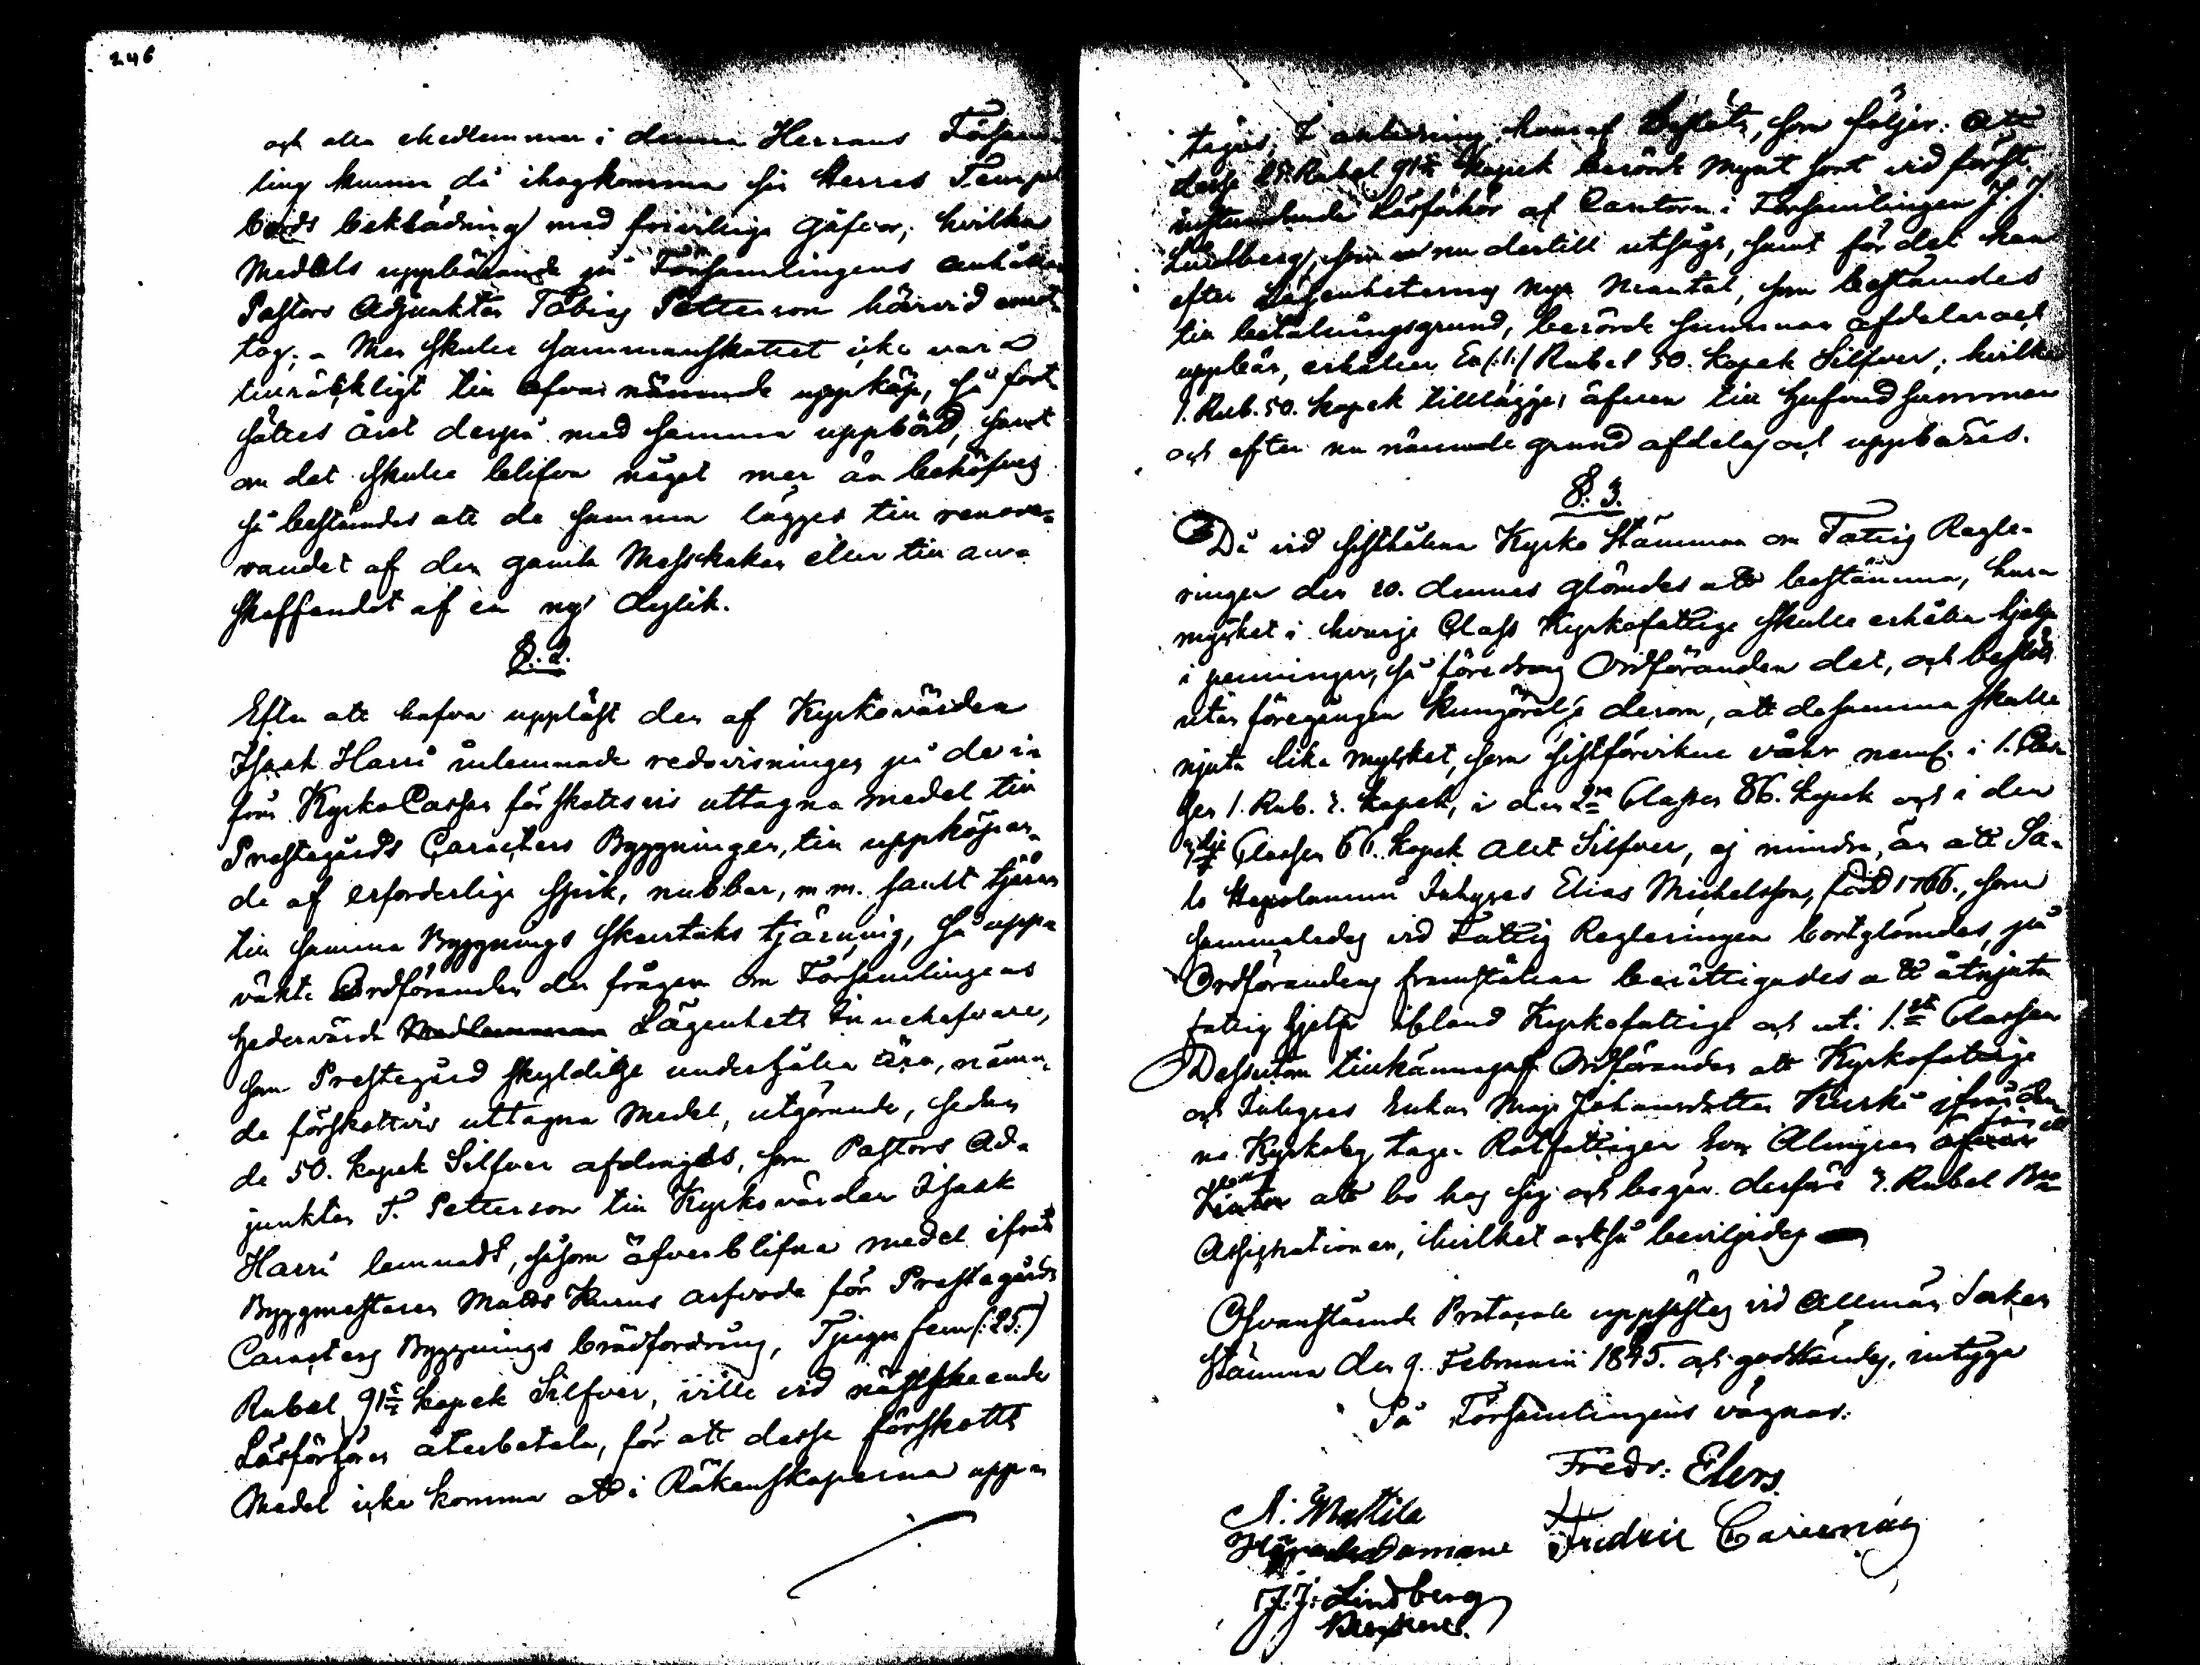 246
och alla Medlemmar i denna Herrans Församling
ling kunna då ihogkomma sin Herres Tempel
bords beklädning med frivillige gåfvor, hvilka
Medels uppbärande på Församlingens anhållan
Pastors Adjunkten Tobias Petterson härvid emot-
tog. - Men skulle sammanskottet icke vara
tillräckligt till ofvannämnde uppköp, så fort-
sättes året derpå med samma uppbörd, samt
om det skulle blifva något mer än behöfves
så bestämdes att de samma lägges till renove-
randet af den gamla Messhaken eller till an-
skaffandet af en ny dylik.
§. 2.
Efter att hafva uppläst den af Kyrkovärden
Isaak Harri inlemnade redovisningen på de i
från Kyrko Cassan förskottsvis uttagna medel till
Prestegårds Caracters Byggningen, till uppköpan-
de af erforderlige spik, nubbar, m.m. samt tjäran
till samma Byggnings skaurtaks tjärning, så upp-
väkte Ordföranden den frågan om Församlingens
hedervärde Medlemmar Lägenhets Innehafvare,
som Prestegård skyldige underhålla ära, nämn-
de förskottsvis uttagna Medel, utgörande, sedan
de 50. kopek Silfver afdragits, som Pastors Ad-
junkten T. Petterson till Kyrkovärden Isaak
Harri lemnadt, såsom äfverblifna medel ifrån
Byggmesteren Matts Kurus arfvode för Prestegårds
Caracters Byggnings brädfordring, Tjugu fem (:25:)
Rubel 91 kopek Silfver, ville vid nästskeende
Läsförhören återbetala, för att dessa förskotts
Medel icke komma att i Räkenskaperna upp-
tagas, I anledning häraf beslöts, som följer: Att
desse 25. Rubel 91 kopek berörde Mynt sort vid först
instundande Läsförhör af Cantorn i Församlingen J. J.
Lindberg, som nu dertill utsågs, samt för det han
efter Lägenheternes nya Mantal, som bestämdes
till betalningsgrund, berörde summan afdelar och
uppbär, erhåller En (:1:) Rubel 50. kopek Silfver; hvilka
1. Rub. 50. kopek tilläggas äfven till hufvud summan
och efter nu nämnde grund afdelas och uppbäres.
§. 3.
Då vid sisthållna Kyrko Stämman om Fattig Regle-
ringen den 20. dennes glömdes att bestämma, huru
mycket i hvarje Class Kyrkofattige skulle erhålla hjelp
i penningar, så föredrog Ordföranden det, och beslöts
utan föregången kungörelse derom, att desamma skulle
njuta lika mycket, som sistförvikne våhr neml. i 1. Clas-
sen 1. Rub. 2. kopek, i den 2:ra Classen 86. kopek och i den
3:dje Classen 66. kopek Allt Silfver, ej mindre, än att Sa-
lo Inhyses Elias Michelsson, född 1766., som
sammaledes vid Fattig Regleringen bortglömdes, på
Ordförandens framställan berättigades att åtnjuta
fattig hjelp ibland Kyrkofattige och uti 1.sta Classen
Dessutom tillkännagaf Ordföranden att Kyrkofattige
och Inhyses Enkan Maja Johansdotter Kurki ifrån den-
na Kyrkoby tager Rotfattigen Eva Almgren
att bo hos sig och begär derföre 2. Rubel B:co
Assignationer, hvilket också beviljades
Ofvanstående Protocoll upplästes vid Allmän Sockne
Stämma den 9. Februarii 1845. och godkändes, intyga
På Församlingens vägnar:
Fredr: Elers.
A: Mattila
Fredric Carienius
J. J: Lindberg